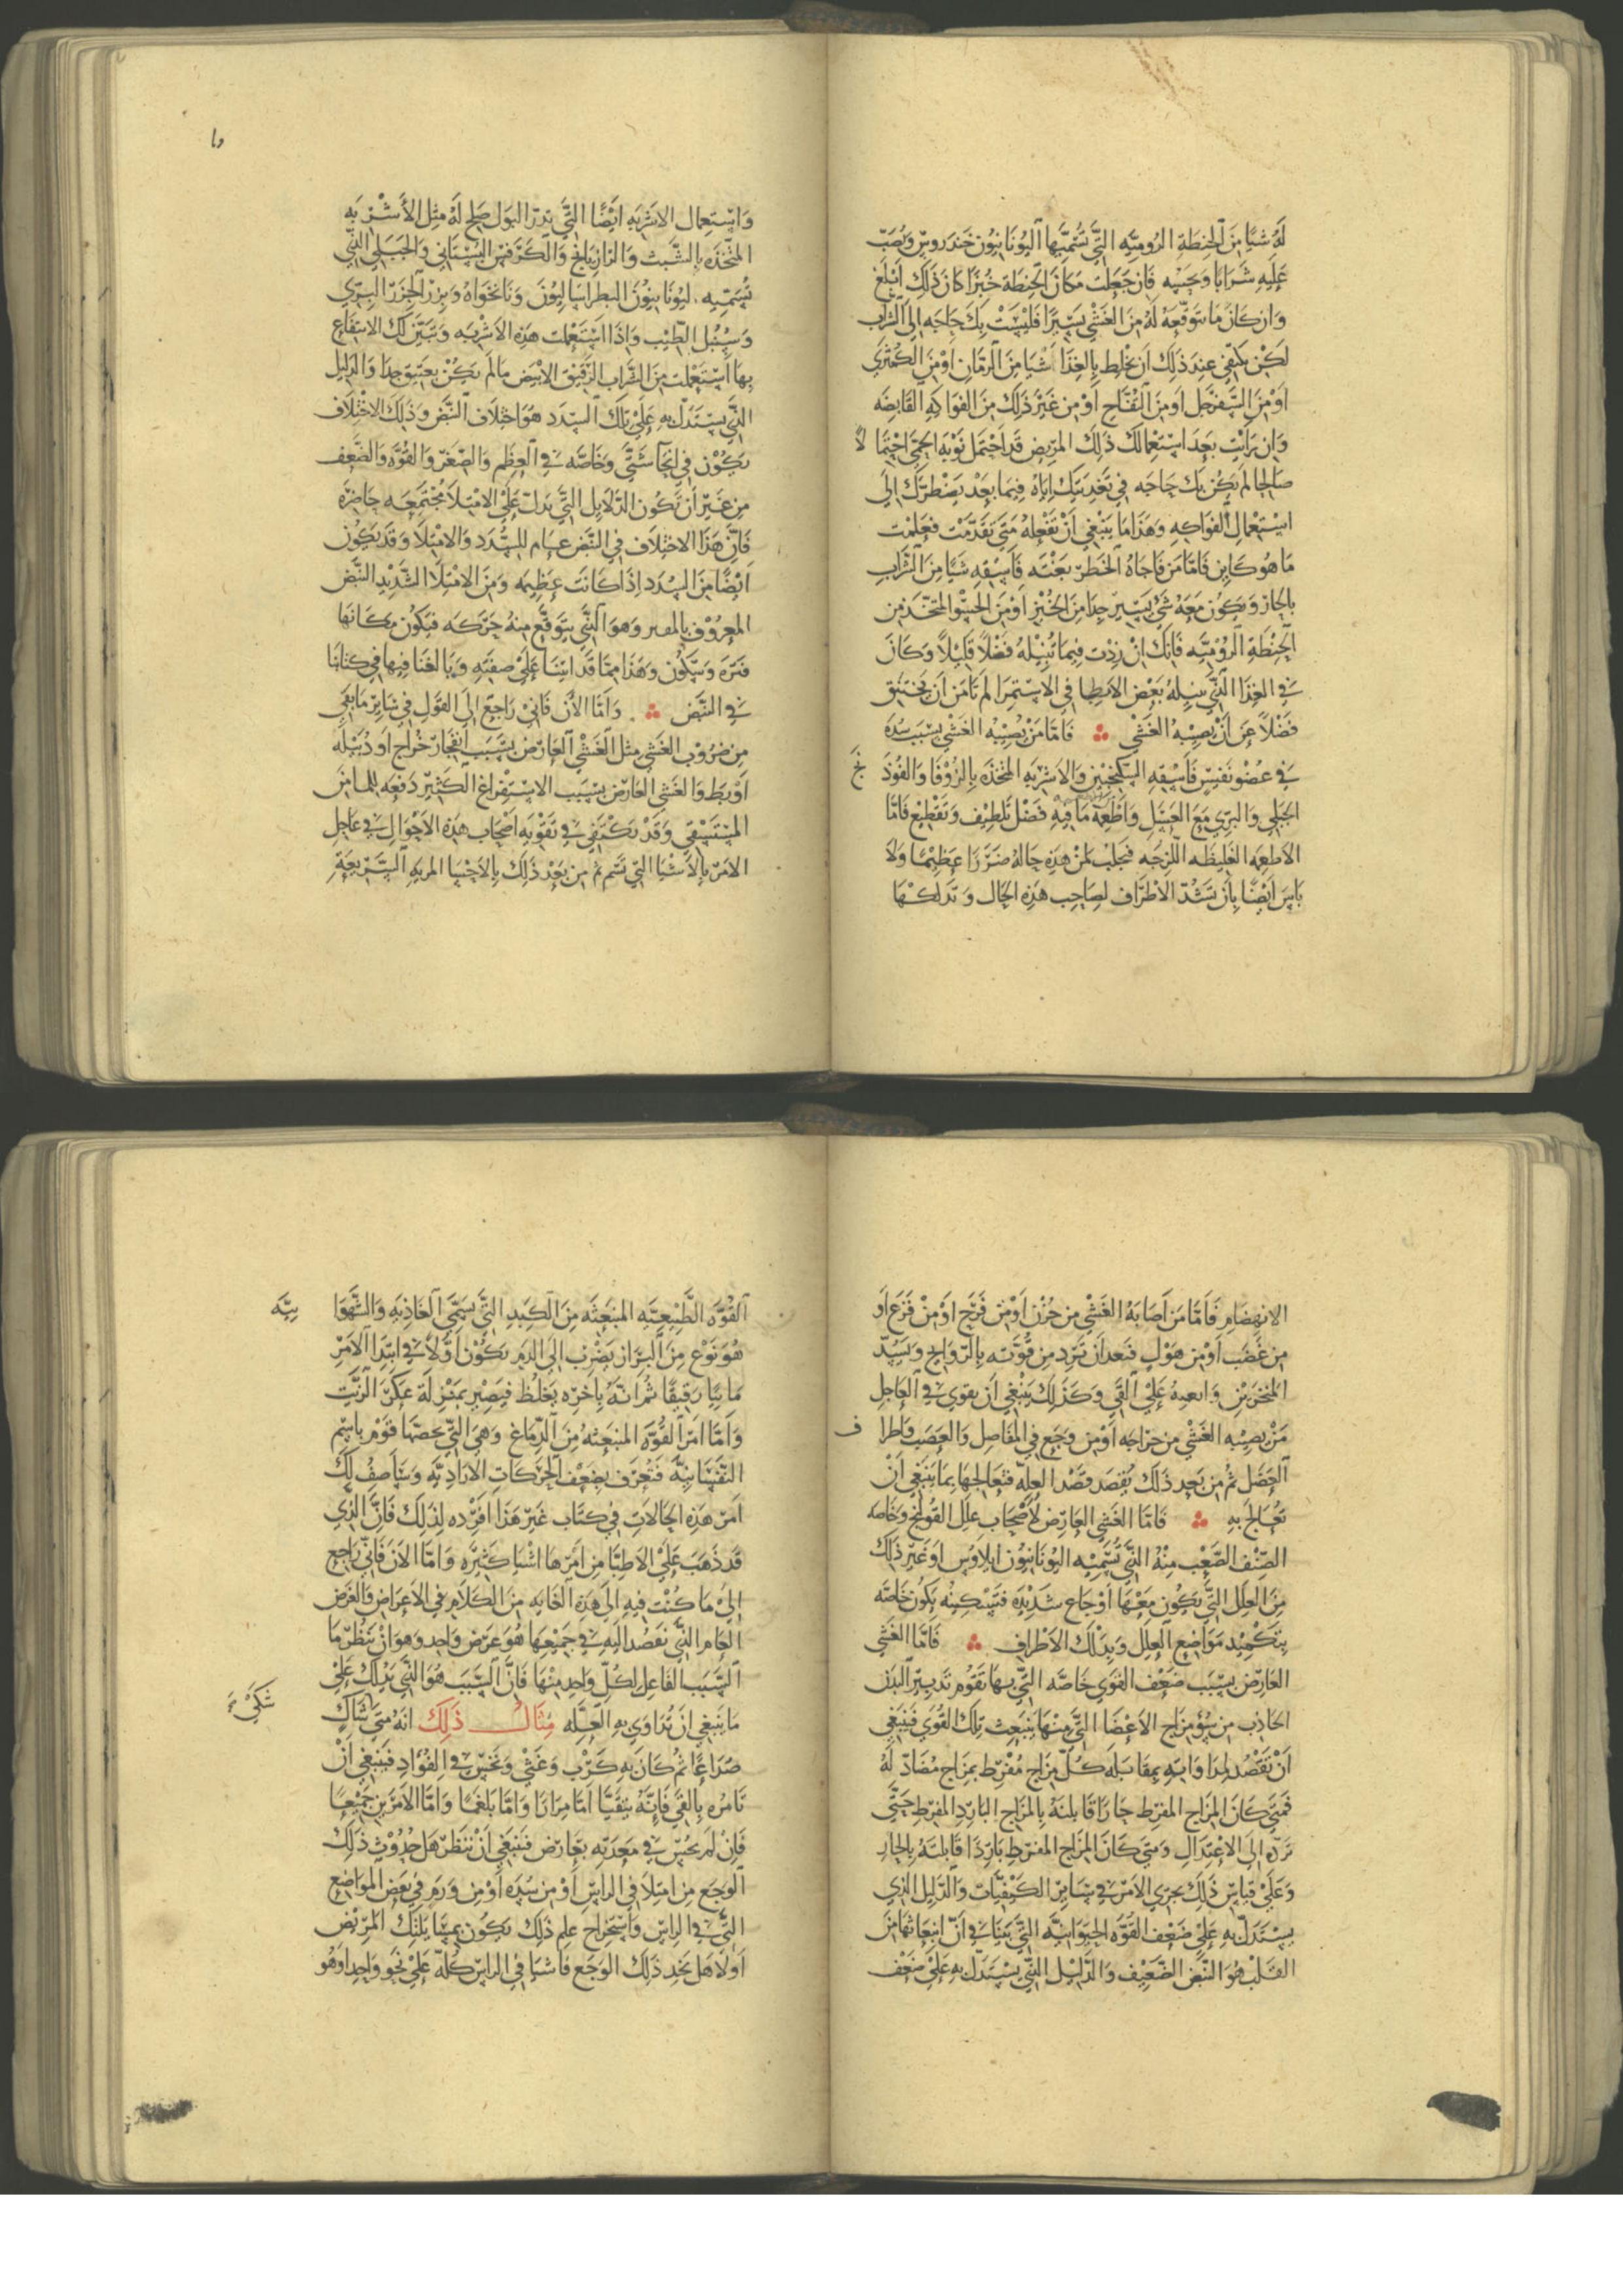 له شيئا من الحنطة الرومية التي تسميها اليونانيون خندروس وتصب
عليه شرابا وحسيه فان جعلت مكان الحنطة خبزا كان ذلك ابلغ
وان كان ما تتوقعه له من الغشي يسيرا فليست بك حاجه الى الشراب
لكن يكفي عند ذلك ان تخلط بالغذا شيا من الرمان او من الكمثرى
او من السفرجل او من التفاح او من غير ذلك من الفواكه القابضه
وان رايت بعد استعمالك ذلك المريض قد احتمل نوبة الحمى احتما لا
صالحا لم يكن بك حاجه في تغذيتك اياه فيما بعد يضطرك الى
استعمال الفواكه وهذا ما ينبغي ان تفعله متى تقدمت فعلمت
ما هو كاين فاما من فاجاه الخطر بغته فاسقه شيا من الشراب
بالحار ويكون معه شي يسير جدا من الخبز او من الحسو المتخذ من
الحنطة الرومية فانك ان زدت فيما تنيله فضلا قليلا وكان
في الغذا الذي ينيله بعض الابطا في الاستمرا لم تامن ان يختنق
فضلا عن ان يصيبه الغشي فاما من يصيبه الغشي بسبب سده
في عضو نفيس فاسقه السكنجبين والاشربه المتخذه بالزوفا والفوذ نج
الجبلي والبري مع العسل واطعمه ما فيه فضل تلطيف وتقطيع فاما
الاطعمه الغليظه اللزجه فتجلب لمن هذه حاله ضررا عظيما ولا
باس ايضا بان تشد الاطراف لصاحب هذه الحال وتدلكها
وا
واستعمال الاشربه ايضا التي تدر البول صلح له مثل الاشربه
المتخذه بالشبث والرازيانج والكرفس البستاني والجبلي الذي
تسميه اليونانيون البطراساليون ونانخواه وبزر الجزر البري
وسنبل الطيب واذا استعملت هذه الاشربه وتبين لك الانتفاع
بها استعملت من الشراب الرقيق الابيض ما لم يكن بعتيق جدا والدليل
الذي يستدل به على تلك السدد هو اختلاف النبض وذلك الاختلاف
يكون في انحا شتى وخاصه في العظم والصغر والقوه والضعف
من غير ان تكون الدلايل التي تدل على الامتلا مجتمعه حاضره
فان هذا الاختلاف في النبض عام للسدد والامتلا وقد يكون
ايضا من السدد اذا كانت عظيمه ومن الامتلا الشديد النبض
المعروف وهو الذي يتوقع منه حركه فيكون مكانها
فتره وسكون وهذا مما قد اتينا على صفته وبالغنا فيها في كتابنا
في النبض واما الان فاني راجع الى القول في ساير ما بقي
من ضروب الغشي مثل الغشي العارض بسبب انفجار خراج او دبيله
او بط والغشي العارض بسبب الاستفراغ الكثير دفعه للما من
المستسقى وقد يكتفى في تقويه اصحاب هذه الاحوال في عاجل
الامر بالاشيا التي تشم ثم من بعد ذلك بالاحسا المريه السريعة
الانهضام فاما من اصابه الغشي من حزن او من فرح او من فزع او
من غضب او من هول فبعد ان ترد من قوته بالروايح وبسد
المنخرين وابعثه على القي وكذلك ينبغي ان يقوى في العاجل
من يصيبه الغشي من جراحه او من وجع في المفاصل والعصب واطرا ف
العضل ثم من بعد ذلك يقصد قصد العله فتعالجها بما ينبغي ان
تعالج به فاما الغشي العارض لاصحاب علل القولنج وخاصه
الصنف الصعب منه الذي تسميه اليونانيون ايلاوس او غير ذلك
من العلل التي يكون معها اوجاع شديده فتسكينه يكون خاصه
بتكميد مواضع العلل وبدلك الاطراف فاما الغشي
العارض بسبب ضعف القوى خاصه التي بها تقوم تدبير البدن
الحادث من سؤ مزاج الاعضا التي منها ينبعث تلك القوى فينبغي
ان تقصد لمداواته بمقابله كل مزاج مفرط بمزاج مضاد له
فمتى كان المزاج المفرط حارا قابلته بالمزاج البارد المفرط حتى
ترده الى الاعتدال ومتى كان المزاج المفرط باردا قابلته بالحار
وعلى قياس ذلك يجري الامر في ساير الكيفيات والدليل الذي
يستدل به على ضعف القوه الحيوانيه التي بينا في ان انبعاثها من
القلب هو النبض الضعيف والدليل الذي يستدل به على ضعف
القوه الطبيعيه المنبعثه من الكبد التي تسمى الغاذيه والشهوا نيه
هو نوع من البراز يضرب الى الدم يكون اولا في ابتدا الامر
ماييا رقيقا ثم انه باخره يغلظ فيصير بمنزلة عكر الزيت
واما امر القوه المنبعثه من الدماغ وهي التي يخصها قوم باسم
النفسانيه فتعرف بضعف الحركات الاراديه وساصف لك
امر هذه الحالات في كتاب غير هذا افرده لذلك فان الذي
قد ذهب على الاطبا من امرها اشيا كثيره واما الان فاني راجع
الى ما كنت فيه الى هذه الغايه من الكلام في الاعراض والغرض
العام الذي نقصد اليه في جميعها هو غرض واحد وهو ان تنظر ما
السبب الفاعل لكل واحد منها فان السبب هو الذي يدلك على
ما ينبغي ان تداوى به العله مثال ذلك انه متى شاك
شكى
صداعا ثم كان به كرب وغشي ونخس في الفؤاد فينبغي ان
تامره بالقي فانه يتقيا اما مرارا واما بلغما واما الامرين جميعا
فان لم يحس في معدته بعارض فينبغي ان تنظر هل حدوث ذلك
الوجع من امتلا في الراس او من سده او من ورم في بعض المواضع
التي في الراس واستخراج علم ذلك يكون بمسايلتك المريض
اولا هل يجد ذلك الوجع فاشيا في الراس كله على نحو واحد او هو